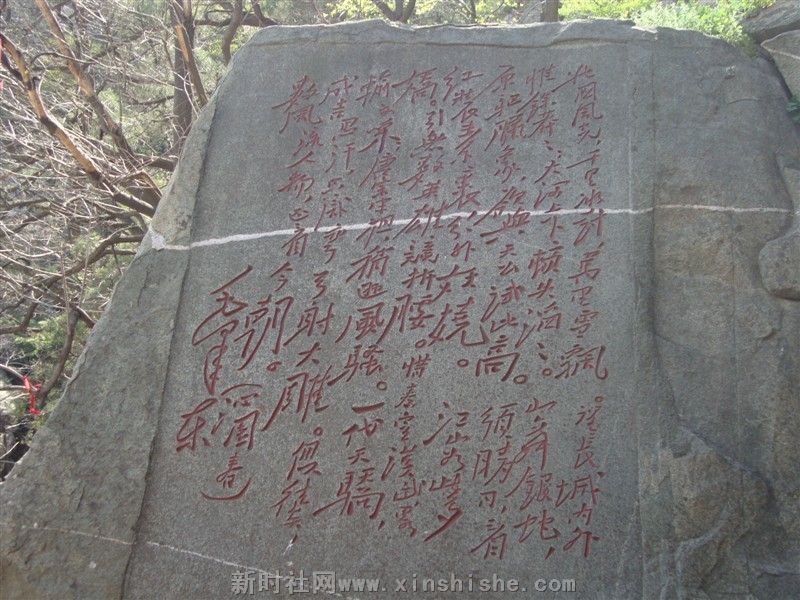 北国風光，千里冰封，萬里雪飄。望長城内外
惟餘莽々；大河上下，頓失滔々。山舞銀蛇，
原馳臘象，欲与天公試比高。須晴日，看
红装素裹，分外妖娆。江山如此多
嬌。引無数英雄競折腰。惜秦皇漢武，略
輸文采；唐宗宋祖，稍逊風騷。一代天驕，
成吉思汗，只識彎弓射大雕。俱往矣，
数風流人物，还看今朝。
沁園春
毛泽东
新时社网www.xinshishe.com